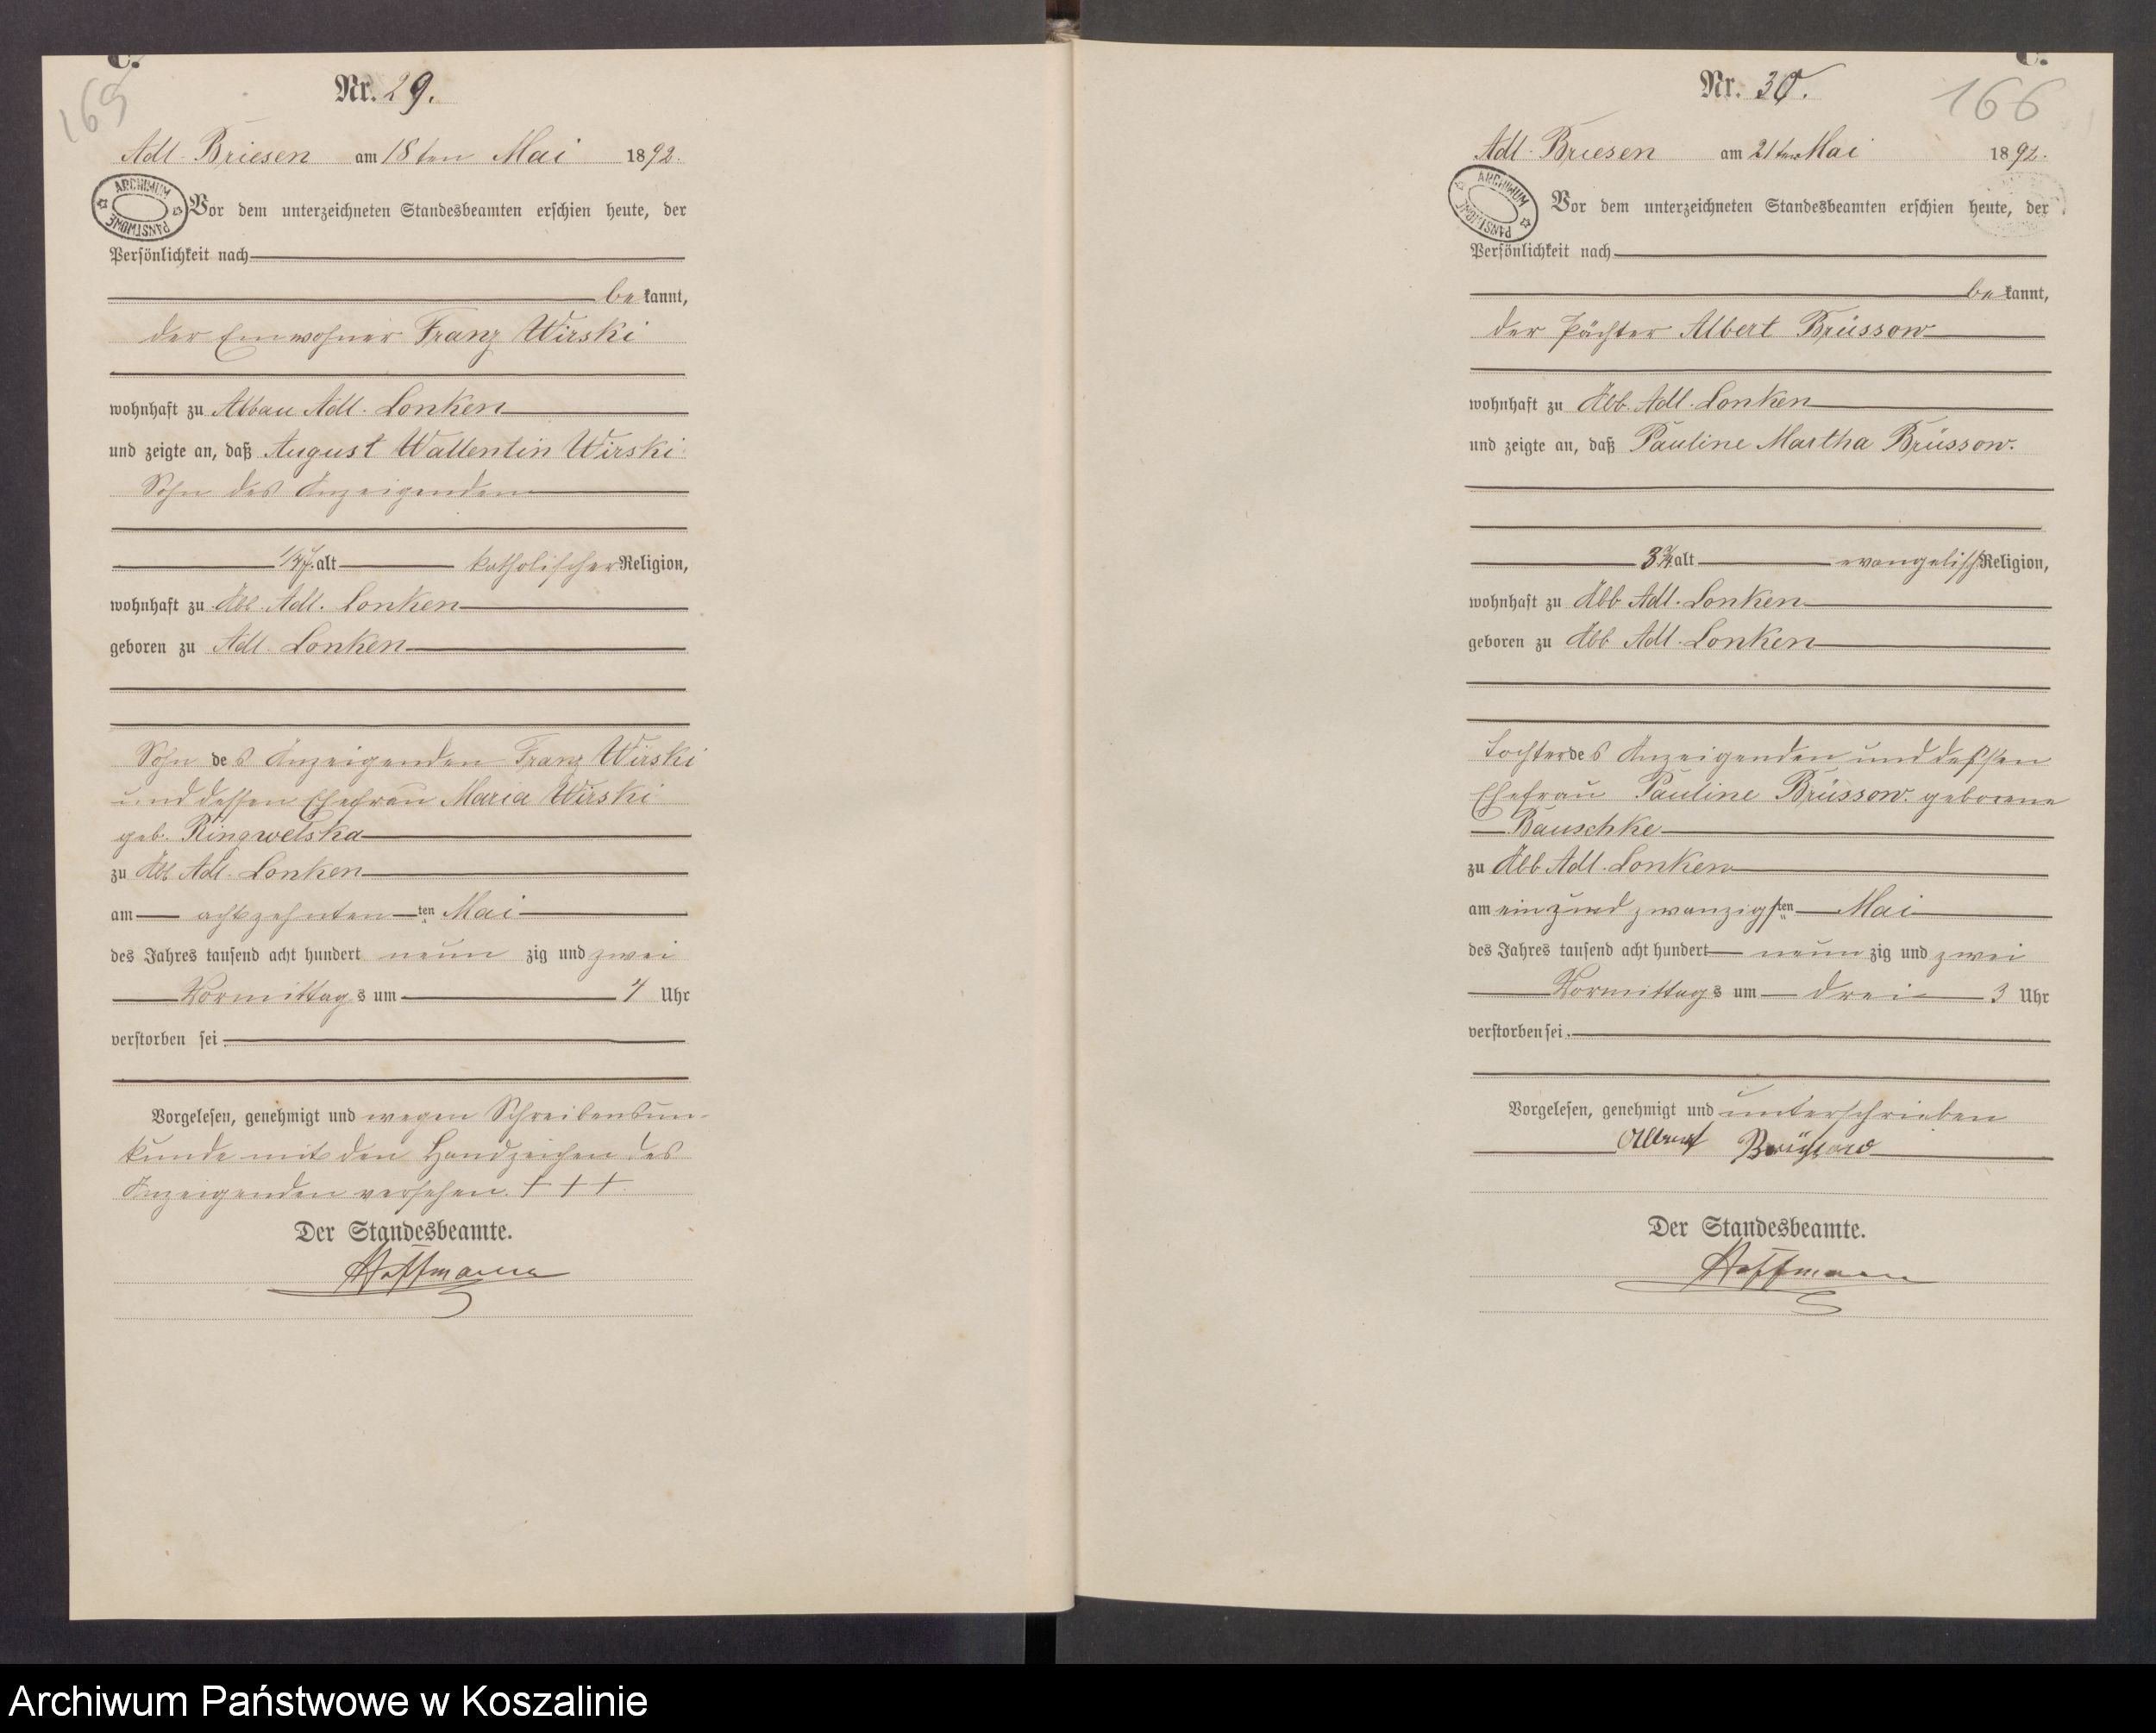 C.
165
Nr. 29.
Adl. Briesen am 18ten Mai 1892.
ARCHIWUM PAŃSTWOWE
Vor dem unterzeichneten Standesbeamten erschien heute, der
Persönlichkeit nach
bekannt,
der Einwohner Franz Wirski
wohnhaft zu Abbau Adl. Lonken
und zeigte an, daß August Wallentin Wirski
Sohn des Anzeigenden
alt katholischer Religion,
wohnhaft zu Abb. Adl. Lonken
geboren zu Adl. Lonken
Sohn des Anzeigenden Franz Wirski
und dessen Ehefrau Maria Wirski
geb. Ringwelska
zu Abb Adl. Lonken
am achtzehnten ten Mai
des Jahres tausend acht hundert neun zig und zwei
Vormittags um 4 Uhr
verstorben sei.
Vorgelesen, genehmigt und wegen Schreibensun-
kunde mit den Handzeichen des
Anzeigenden versehen. + + +
Der Standesbeamte.
Hoffmann
C.
166
Nr. 30.
Adl. Briesen am 21ten Mai 1892.
ARCHIWUM PAŃSTWOWE
Vor dem unterzeichneten Standesbeamten erschien heute, der
Persönlichkeit nach
bekannt,
der Pächter Albert Brüssow
wohnhaft zu Abb. Adl. Lonken
und zeigte an, daß Pauline Martha Brüssow.
alt evangelisch Religion,
wohnhaft zu Abb Adl. Lonken
geboren zu Abb Adl. Lonken
Tochter des Anzeigenden und deßsen
Ehefrau Pauline Brüssow. geborene
Bauschke
zu Abb Adl. Lonken
am ein und zwanzigsten Mai
des Jahres tausend acht hundert neun zig und zwei
Vormittags um drei 3 Uhr
verstorben sei.
Vorgelesen, genehmigt und unterschrieben
Albert Brüssow
Der Standesbeamte.
Hoffmann
Archiwum Państwowe w Koszalinie